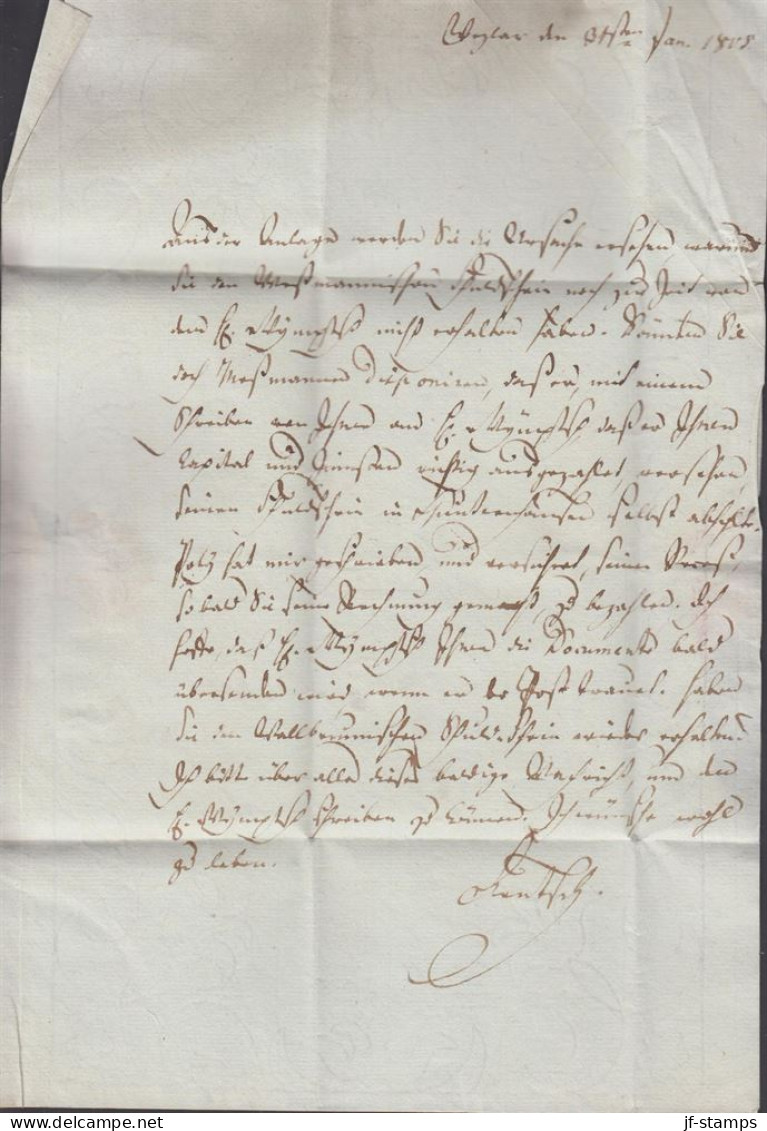 Wezlar den 31sten Jan. 1805
Aus der Anlage werden Sie die Ursache ersehen, warum
Sie den Meßmannischen Schuldschein noch zur Zeit von
dem H. nicht erhalten haben. Könnten Sie
doch Meßmannen disponiren, daß er, mit einem
Schreiben von Ihnen an H. daß er Ihnen
Capital und Zinnßen richtig ausgezahlet, versehen,
seinen Schuldschein in selbst abholte.
hat mir geschrieben und versichert, seinen Rest,
sobald Sie seine Rechnung gemacht, zu bezahlen. Ich
hoffe, daß H. Ihnen die Documente bald
übersenden wird, wenn er der Post trauet. Haben
Sie den Wallbrunnischen Schuldschein wieder erhalten?
Ich bitte über alle dieses baldige Nachricht, um den
H. schreiben zu können. Ich wünsche wohl
zu leben.
Rentsch.
jf-stamps